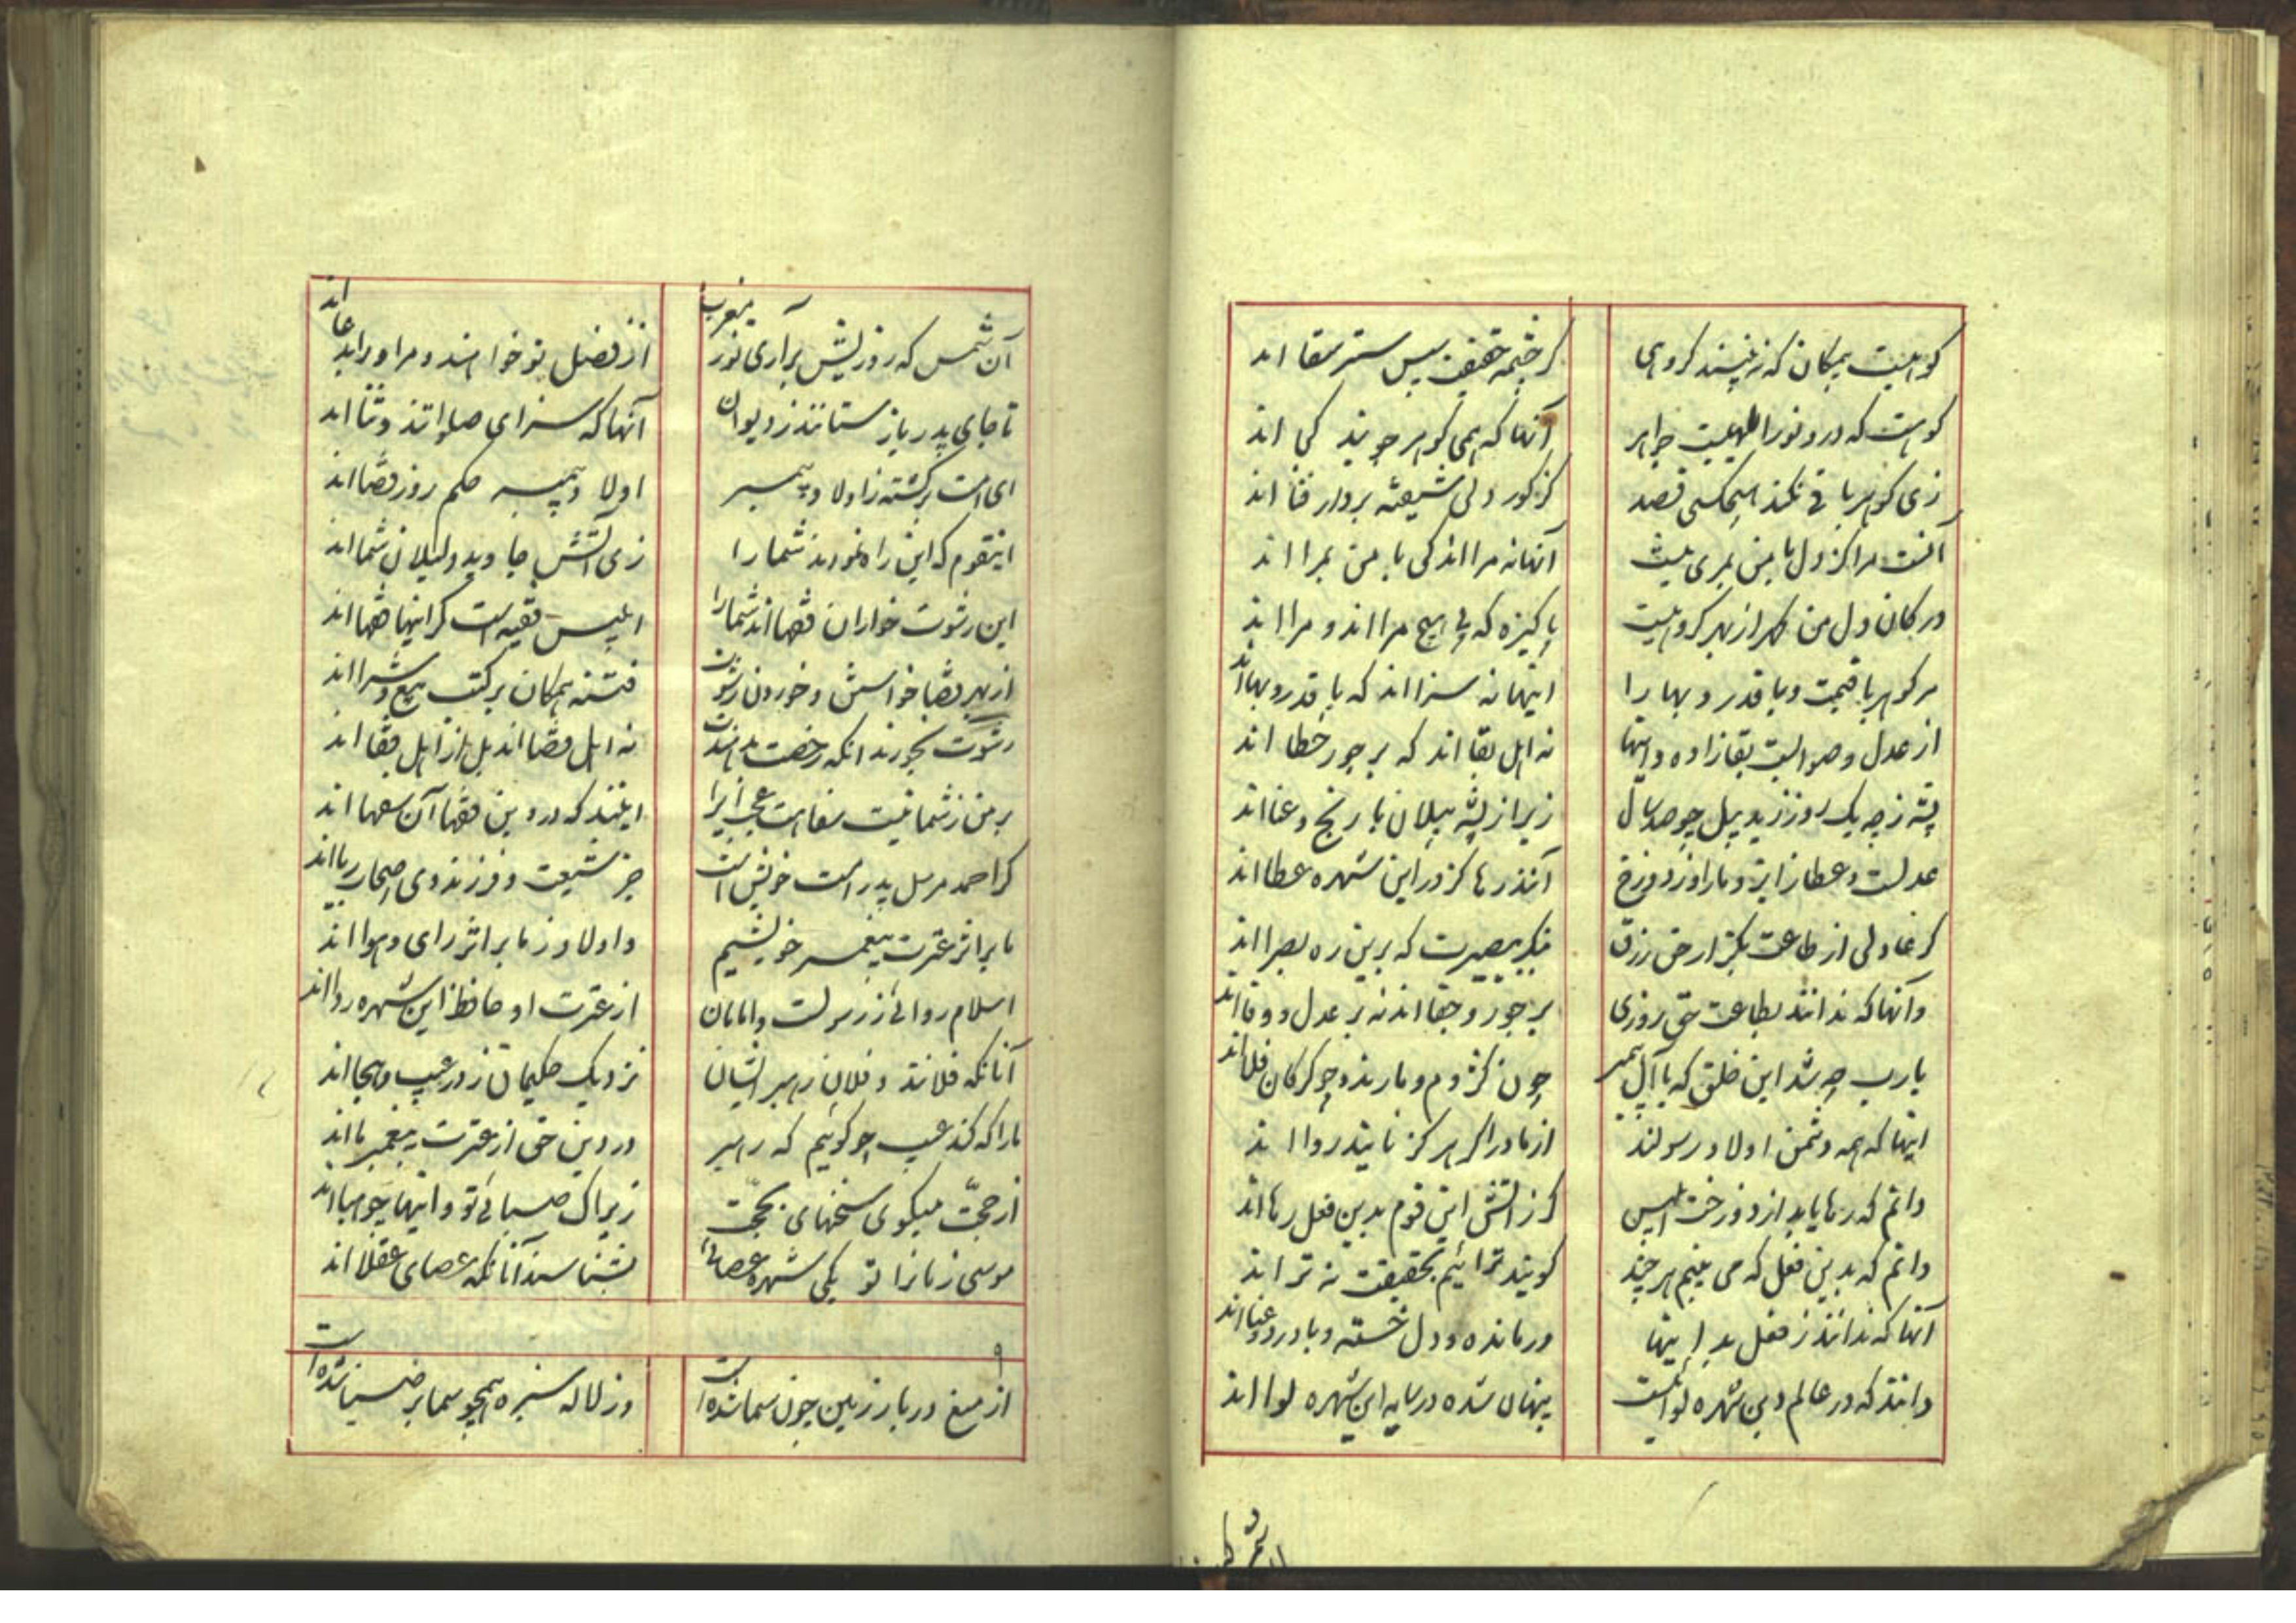 کوهیست یمکان که نه بینند گروهی
کز چشم حقیقت سپس ستر عقا اند
کوهست که در و نور الهیست جواهر
آنها که همی گوهر جویند کی اند
زی گوهر باقی نکند هیچکسی قصد
کز کور دلی شیفته بر دار فنا اند
آنست مرا کز دل با من بمری نیست
آنها نه مرا اند کی با من بمرا اند
در کان دل من گهر از بهر گروهیست
پاکیزه که بی هیچ مرا اند و مرا اند
مر گوهر با قیمت و با قدر و بها را
اینها نه سزا اند که با قدر و بها اند
از عدل و صوابست بقا زاده و اینها
نه اهل بقا اند که بر جور خطا اند
پشه ز چه یک روز زید پیل چو صد سال
زیرا ز پشه پیلان با رنج و عنا اند
عدلست و عطا ز ایزد ما را و ز دوزخ
آنند رها کز در این شهره عطا اند
گر عادلی از طاعت بگزار حق رزق
بنگر ببصیرت که برین ره بصرا اند
وآنها که ندانند بطاعت حق روزی
بر جور و جفا اند نه بر عدل و وفا اند
یارب چه شد این خلق که با آل پیمبر
چون کژدم و مارند و چو گرگان فلا اند
اینها که همه دشمن اولاد رسولند
از مادر اگر هرگز نایند روا اند
دانم که رها یابد از دوزخ ابلیس
گر ز آتش این قوم بدین فعل رها اند
دانم که بدین فعل که می بینم هر چند
گویند ترائیم بحقیقت نه ترا اند
آنها که ندانند ز فعل بد اینها
درمانده و دل خسته و با درد و عنا اند
دانند که در عالم دین شهره لوائیست
پنهان شده در سایه این شهره لوا اند
آن شمس که روزیش برآری تو ز مغرب
از فضل تو خواهند و مر او را بدعا اند
تا جای پدر باز ستانند ز دیوان
آنها که سزای صلواتند و ثنا اند
ای امت برگشته ز اولاد پیمبر
اولاد پیمبر حکم روز قضا اند
اینقوم که این راه نمودند شما را
زی آتش جاوید دلیلان شما اند
این رشوت خواران فقها اند شما را
ابلیس فقیه است گر اینها فقها اند
از بهر قضا خواستن و خوردن رشوت
فتنه همگان بر کتب بیع و شرا اند
رشوت بخورند آنگه رخصت بدهندت
نه اهل قضا اند بل از اهل قفا اند
بر من ز شما نیست سفاهت عجب ایرا
اینند که در دین فقها آن سفها اند
گر احمد مرسل پدر امت خویش است
جز شیعت و فرزند وی اصحاب ریا اند
ما بر اثر عترت پیغمبر خویشیم
و اولاد زنا بر اثر رای و هوا اند
اسلام روائی ز رسولست و امامان
از عترت او حافظ این شهره ردا اند
آنانکه فلانند و فلان رهبر ایشان
نزدیک حکیمان ز در عیب و هجا اند
ما را که کند عیب چو گوئیم که رهبر
در دین حق از عترت پیغمبر ما اند
از حجت میگوی سخنهای بحجت
زیراک صبائی تو و اینها چو هبا اند
موسی زمانرا تو یکی شهره عصائی
نشناسند آنانکه عصای عقلا اند
۹
از میغ دربار زمین چون سما شده است
وز لاله سبزه همچو سما پر ضیا شده است